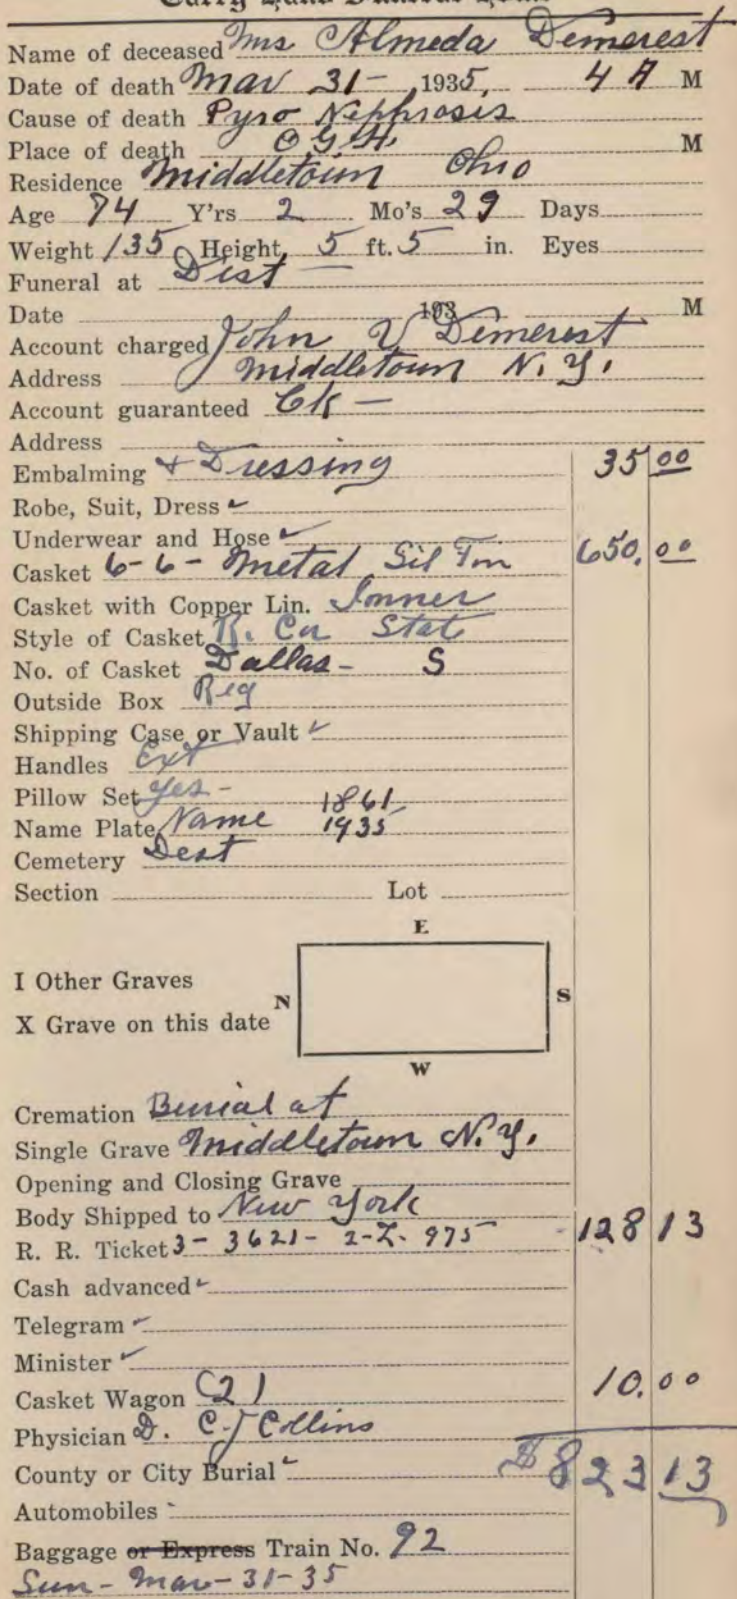 Carry Hand Funeral Home
Name of deceased Mrs Almeda Demerest
Date of death Mar 31- 1935, 4 A M
Cause of death Pyro Nephrosis
Place of death O G H. M
Residence Middletown Ohio
Age 74 Y'rs 2 Mo's 29 Days
Weight 135 Height 5 ft. 5 in. Eyes
Funeral at Dist -
Date 193 M
Account charged John V Demerest
Address Middletown N. Y.
Account guaranteed Ck -
Address
Embalming & Dressing 35 00
Robe, Suit, Dress
Underwear and Hose
Casket 6-6- Metal Sil Tin 650. 00
Casket with Copper Lin. Inner
Style of Casket State
No. of Casket Dallas- S
Outside Box Reg
Shipping Case or Vault
Handles Ext
Pillow Set Yes - 1861
Name Plate Name 1935
Cemetery Dest
Section Lot
E
I Other Graves
N S
X Grave on this date
W
Cremation Burial at
Single Grave Middletown N. Y.
Opening and Closing Grave
Body Shipped to New York
R. R. Ticket 3- 3621- 2-Z- 975 128 13
Cash advanced
Telegram
Minister
Casket Wagon (2) 10.00
Physician D. C. J Collins
County or City Burial $823 13
Automobiles
Baggage or Express Train No. 92
Sun- Mar- 31-35